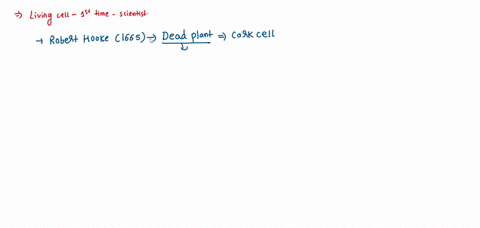 ⇒ Living cell - 1st time - scientist.
→ Robert Hooke (1665) → Dead plant ⇒ Cork cell